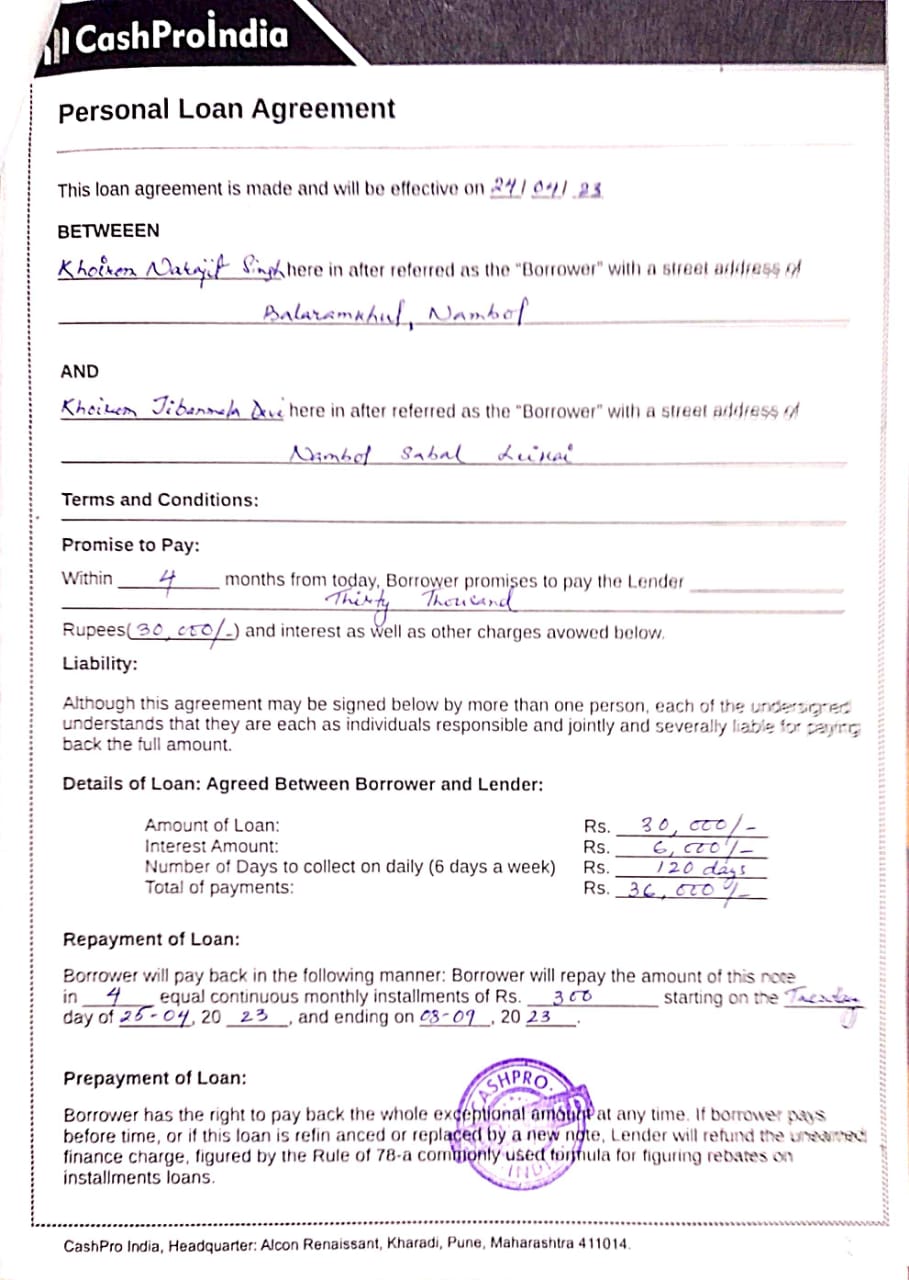 CashProIndia
Personal Loan Agreement
This loan agreement is made and will be effective on 24/04/23
BETWEEEN
Khoirom Natajit Singh here in after referred as the "Borrower" with a street address of
Balaramkhul, Nambol
AND
Khoirom Jibanmala Devi here in after referred as the "Borrower" with a street address of
Nambol Sabal Leikai
Terms and Conditions:
Promise to Pay:
Within 4 months from today, Borrower promises to pay the Lender
Thirty Thousand
Rupees(30,000/-) and interest as well as other charges avowed below.
Liability:
Although this agreement may be signed below by more than one person, each of the undersigned
understands that they are each as individuals responsible and jointly and severally liable for paying
back the full amount.
Details of Loan: Agreed Between Borrower and Lender:
Amount of Loan: Rs. 30,000/-
Interest Amount: Rs. 6,000/-
Number of Days to collect on daily (6 days a week) Rs. 120 days
Total of payments: Rs. 36,000/-
Repayment of Loan:
Borrower will pay back in the following manner: Borrower will repay the amount of this note
in 4 equal continuous monthly installments of Rs. 300 starting on the Tuesday
day of 25-04, 20 23, and ending on 08-09, 20 23.
Prepayment of Loan:
CASHPRO.
Borrower has the right to pay back the whole exceptional amount at any time. If borrower pays
before time, or if this loan is refin anced or replaced by a new note, Lender will refund the unearned
finance charge, figured by the Rule of 78-a commonly used formula for figuring rebates on
installments loans.
CashPro India, Headquarter: Alcon Renaissant, Kharadi, Pune, Maharashtra 411014.